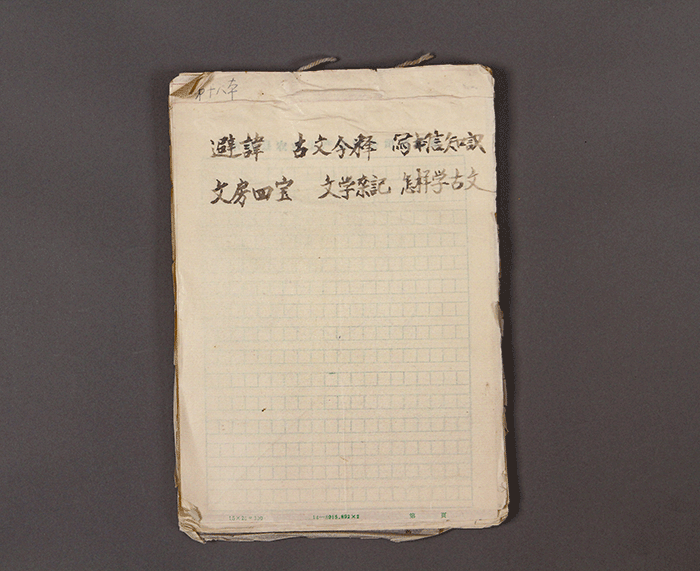 第十八本
避諱 古文今释 写书信知识
文房四宝 文学杂記 怎样学古文
第 頁